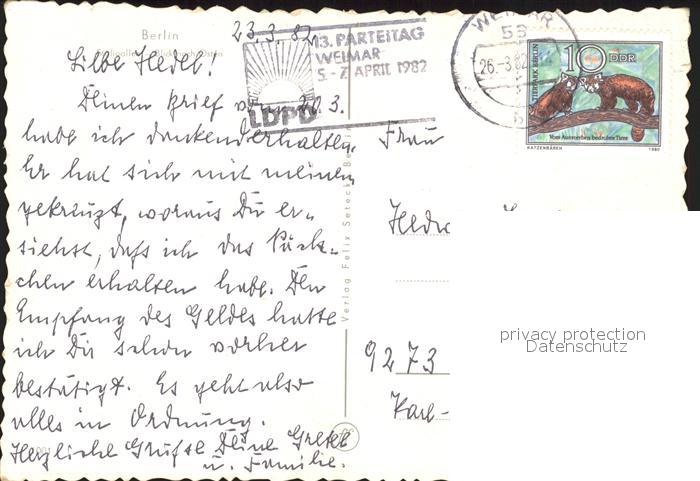 Berlin
23.3.82
13. PARTEITAG
WEIMAR
5.-7. APRIL 1982
LDPD
WEIMAR
53
26.-3.82
TIERPARK BERLIN
10
DDR
Vom Aussterben bedrohte Tiere
KATZENBÄREN
1980
Liebe Hedel!
Deinen Brief vom 20.3.
habe ich dankend erhalten.
Er hat sich mit meinem
gekreuzt, woraus Du er-
siehst, daß ich das Päck-
chen erhalten habe. Den
Empfang des Geldes hatte
ich Dir schon vorher
bestätigt. Es geht also
alles in Ordnung.
Herzliche Grüße Deine Gretel
u. Familie.
Verlag Felix Setecki Berlin
Frau
Hedw
9273
Karl-
privacy protection
Datenschutz